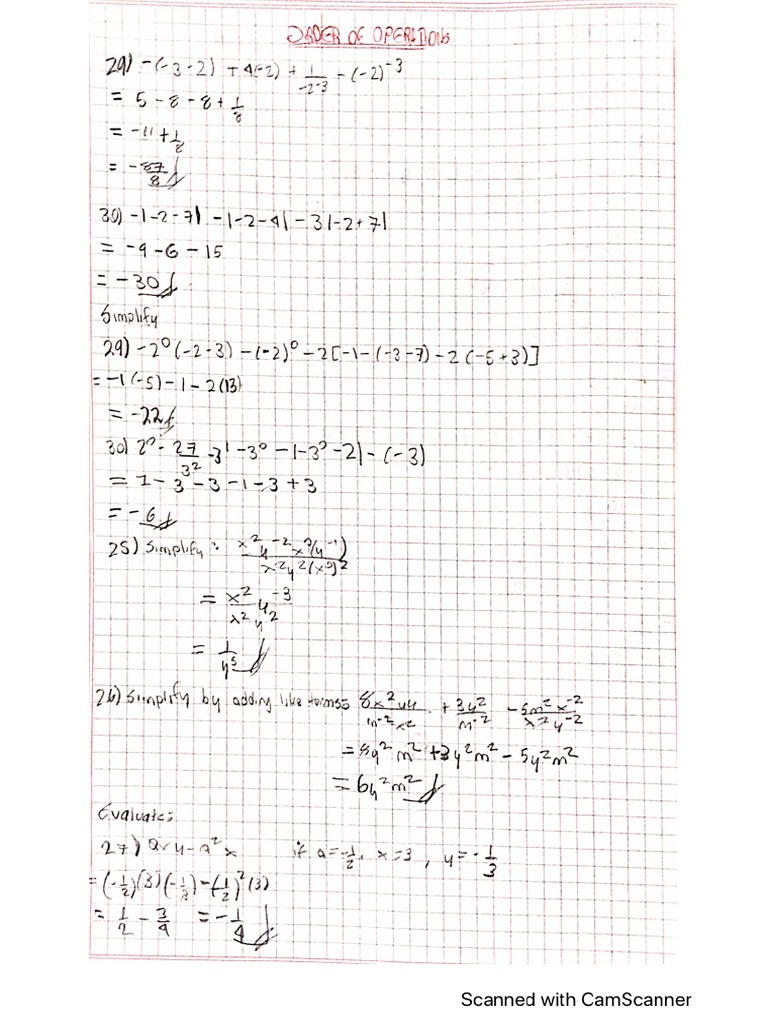 ORDER OF OPERATIONS
29) -(-3-2) + 4(-2) + 1/-2^-3 - (-2)^-3
= 5 - 8 - 8 + 1/8
= -11 + 1/8
= -87/8
30) -|-2-7| - |-2-4| - 3|-2+7|
= -9 - 6 - 15
= -30
Simplify
29) -2^0(-2-3) - (-2)^0 - 2[-1-(-3-7) - 2(-5+3)]
= -1(-5) - 1 - 2(13)
= -22
30) 2^0 - 27/3^2 - 3^1 - 3^0 - |-3^0 - 2| - (-3)
= 1 - 3 - 3 - 1 - 3 + 3
= -6
25) Simplify: x^2y^-2x^0(y^-1)/x^2y^2(x^0)^2
= x^2y^-3/x^2y^2
= 1/y^5
26) Simplify by adding like terms= 8x^2yy/m^-2x^2 + 3y^2/m^-2 - 5m^2x^-2/x^-2y^-2
= 8y^2m^2 + 3y^2m^2 - 5y^2m^2
= 6y^2m^2
Evaluate:
27) axy - a^2x if a = -1/2, x = 3, y = -1/3
= (-1/2)(3)(-1/3) - (-1/2)^2(3)
= 1/2 - 3/4 = -1/4
Scanned with CamScanner